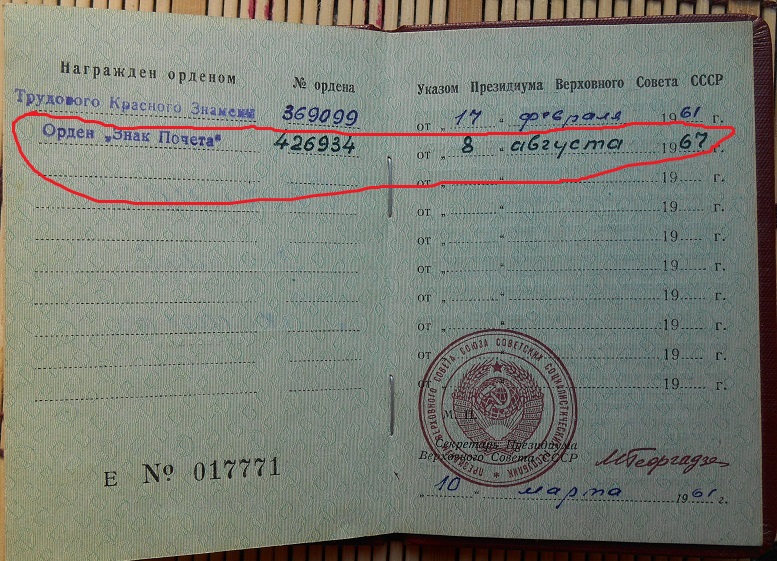 Награжден орденом
№ ордена
Трудового Красного Знамени
369099
Орден „Знак Почета"
426934
Е № 017771
Указом Президиума Верховного Совета СССР
от „ 17 " февраля 1961 г.
от „ 8 " августа 1967 г.
от „ " 19 г.
от „ " 19 г.
от „ " 19 г.
от „ " 19 г.
от „ " 19 г.
от „ " 19 г.
от „ " 19 г.
от „ " 19 г.
ПРЕЗИДИУМ ВЕРХОВНОГО СОВЕТА СОЮЗА СОВЕТСКИХ СОЦИАЛИСТИЧЕСКИХ РЕСПУБЛИК
М. П.
Секретарь Президиума
Верховного Совета СССР
МГеоргадзе
„ 10 " марта 1961 г.